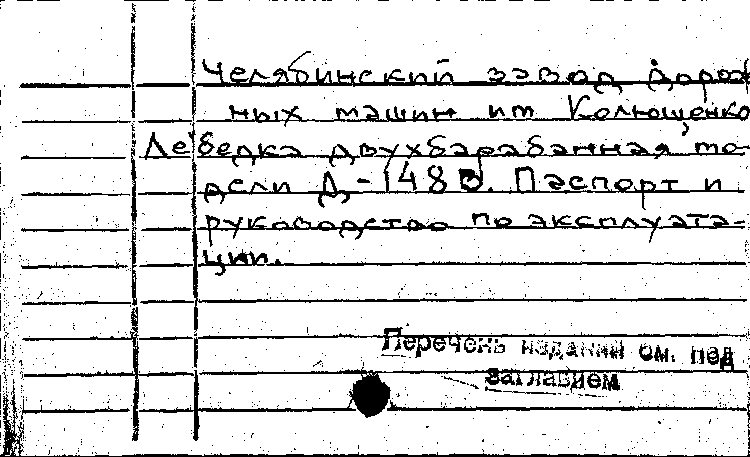 Челябинский завод дорож
ных машин им Колющенко
Лебедка двухбарабанная, мо-
дели Д-148В. Паспорт и
руководство по эксплуата-
ции.
Перечень изданий см. под
заглавием